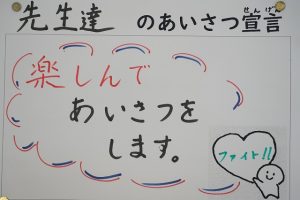 先生達 のあいさつ宣言
せんげん
楽しんで
あいさつを
します。
ファイト!!